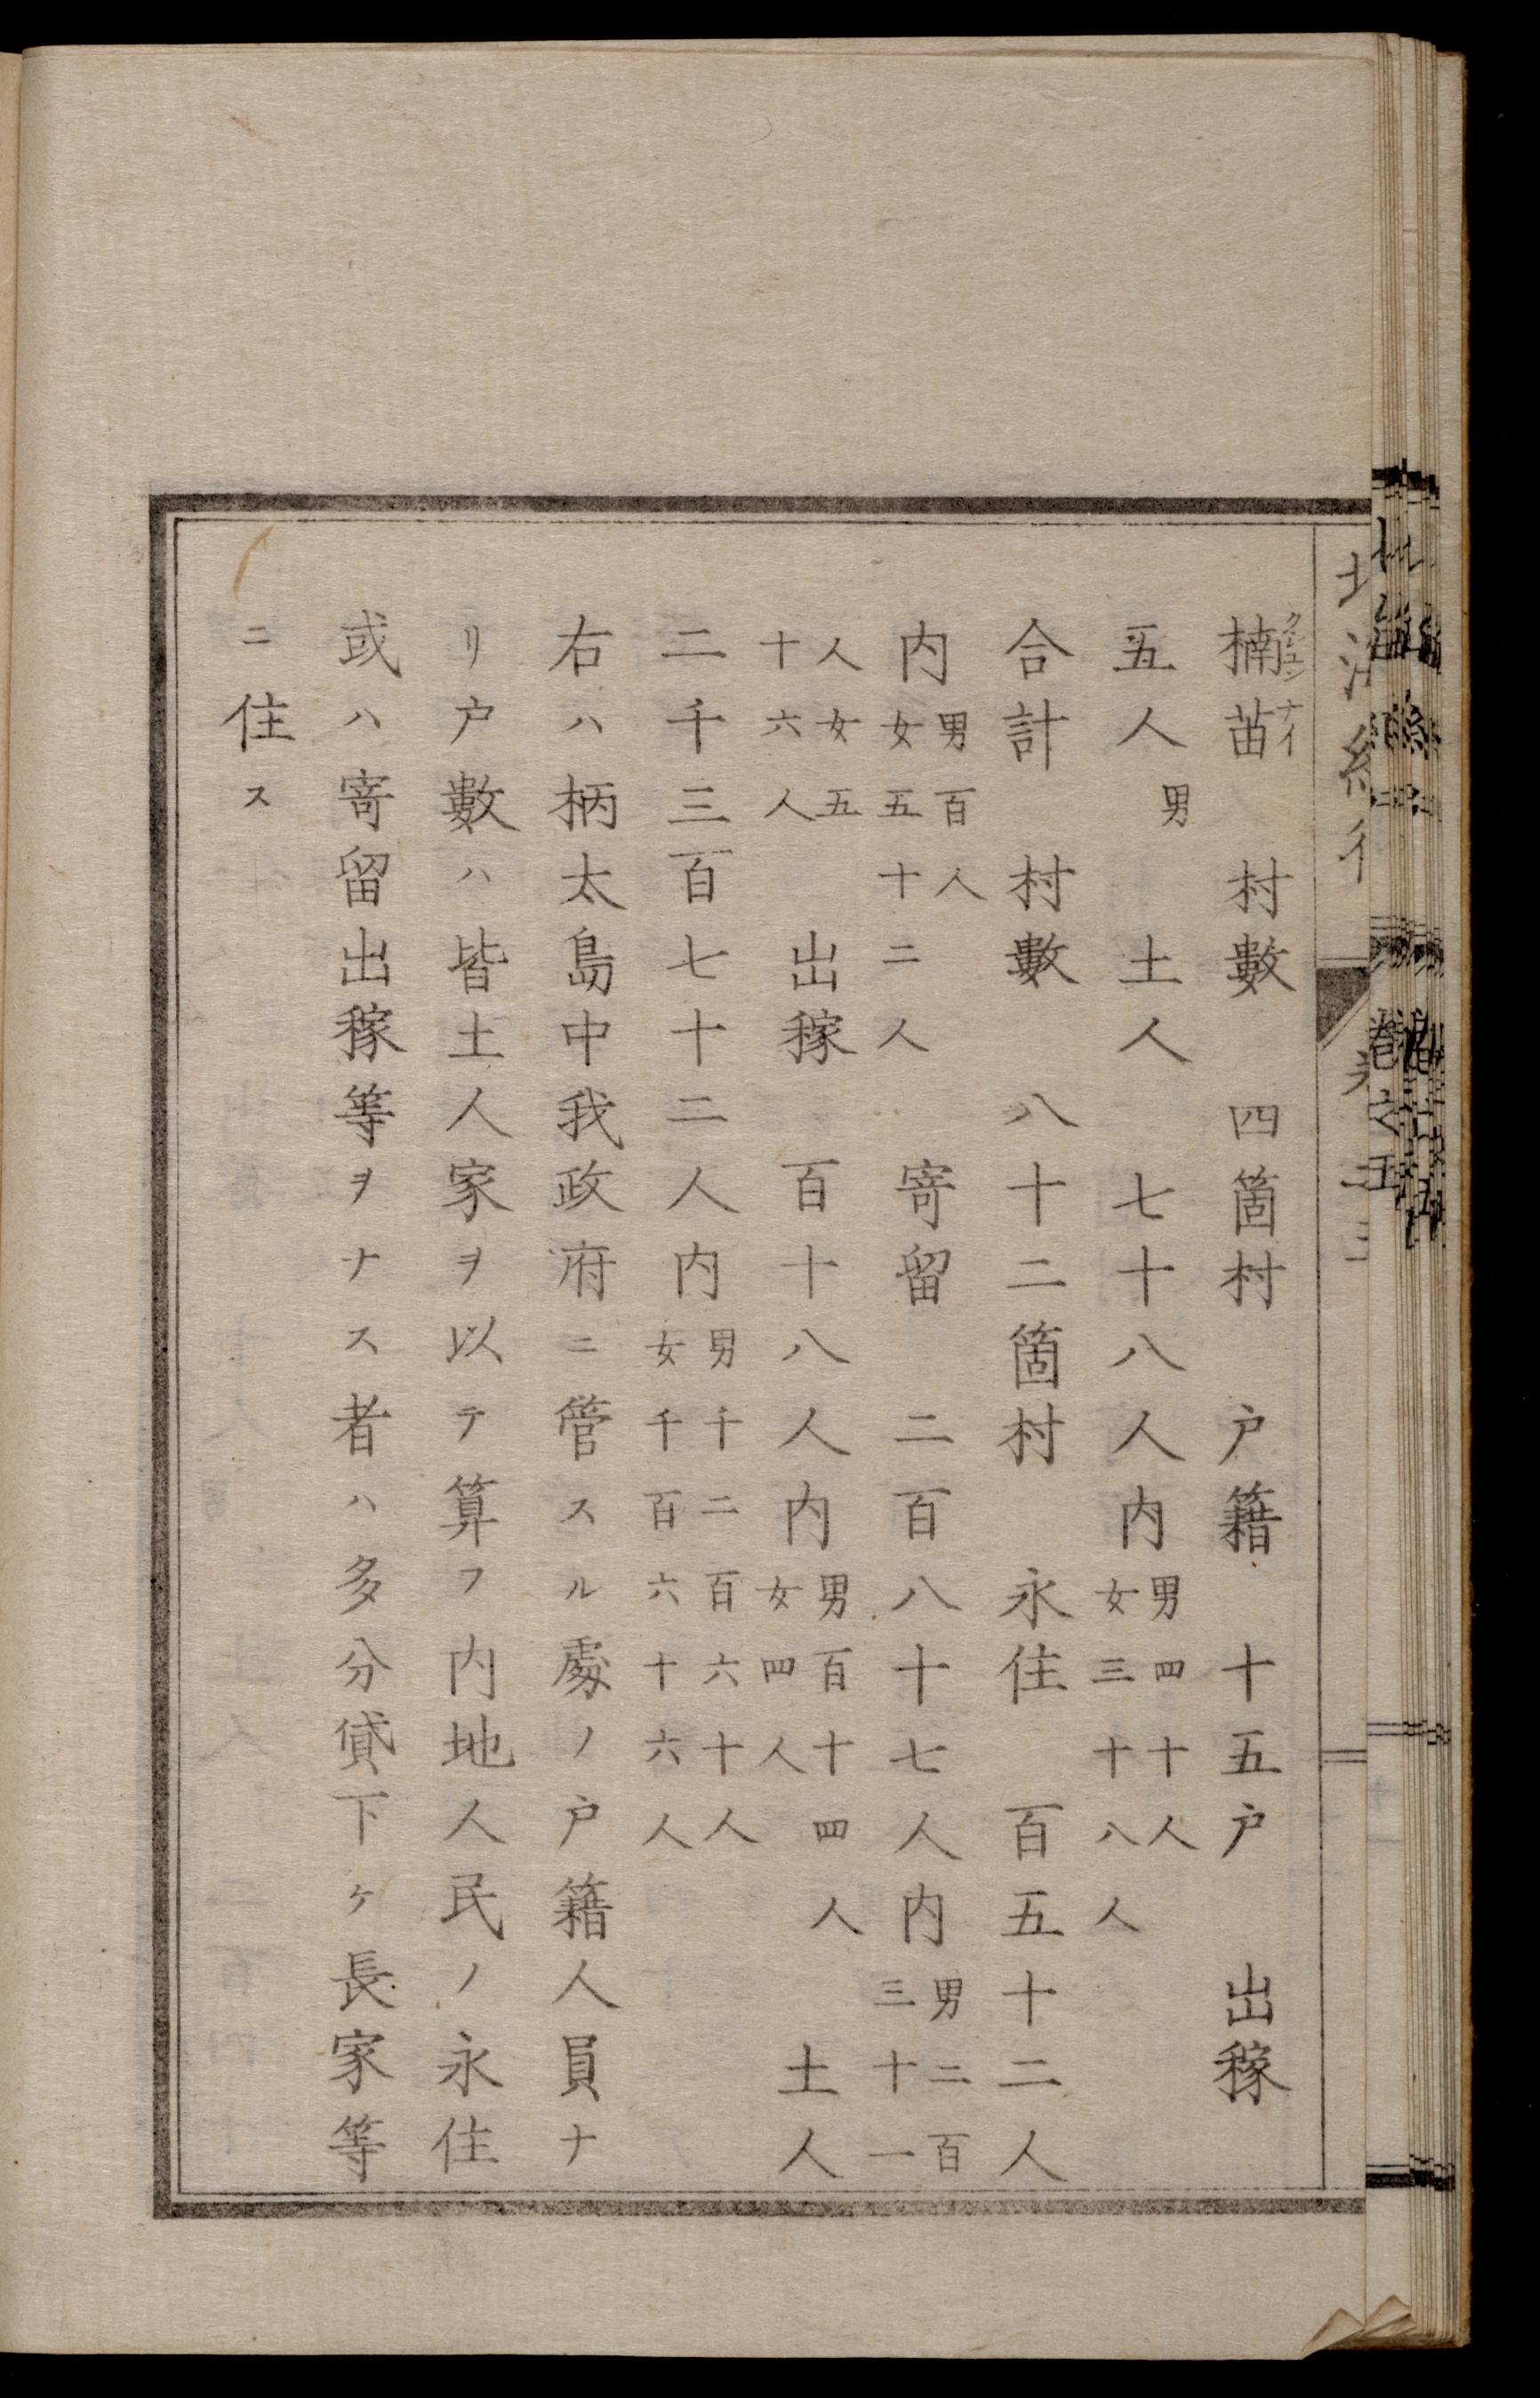 北海紀行 卷之五
楠苗 村數 四箇村 戸籍 十五戸 出稼
五人男 土人 七十八人内男四十人女三十八人
合計 村數 八十二箇村 永住 百五十二人
内男百人女五十二人 寄留 二百八十七人内男二百三十一
人女五十六人 出稼 百十八人内男百十四人女四人 土人
二千三百七十二人内男千二百六十人女千百六十六人
右ハ柄太島中我政府ニ管スル處ノ戸籍人員ナ
リ戸數ハ皆土人家ヲ以テ算フ内地人民ノ永住
或ハ寄留出稼等ヲナス者ハ多分貸下ケ長家等
ニ住ス